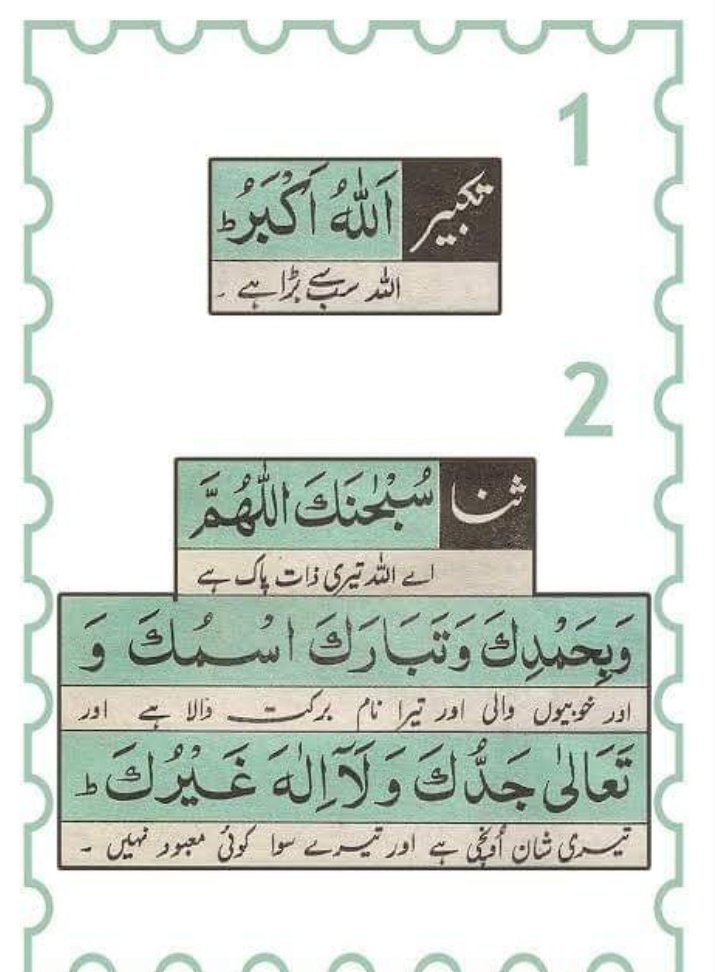 1
تکبیر اَللّٰهُ اَکْبَرُ ؕ
اللہ سب سے بڑا ہے ۔
2
ثنا سُبْحٰنَكَ اللّٰهُمَّ
اے اللہ تیری ذات پاک ہے
وَبِحَمْدِكَ وَتَبَارَكَ اسْمُكَ وَ
اور خوبیوں والی اور تیرا نام برکت والا ہے اور
تَعَالٰی جَدُّكَ وَلَآ اِلٰهَ غَیْرُكَ ؕ
تیری شان اُونچی ہے اور تیرے سوا کوئی معبود نہیں ۔